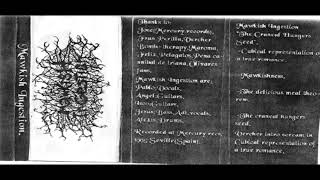 Mawkish Ingestion.
Thanks to:
Jose Mercury records,
Fran Perilla, Dercher
Bomb-therapy, Maroma,
Felix, Pelagatos, Pena ca-
nibal de triana, Olivares
fans,
Mawkish Ingestion are,
Pablo: Vocals,
Angel: Guitars,
Guitars,
Jesus: Bass, Adt. vocals,
Alexis: Drums,
Recorded at Mercury recs,
1995 Seville (Spain).
Mawkish Ingestion
"The Craved Hungers
Seed"
-Cubical representation of
a true romance.
-Mawkishness,
-The delicious meal theo-
rem.
-The craved hungers
seed.
Dercher intro scream in
Cubical representation of
a true romance.